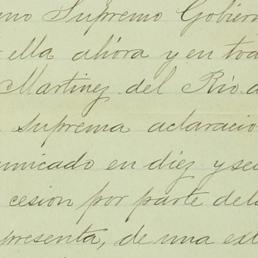 mo Supremo Gobiern
ella ahora y en toda
Martinez del Rio a
suprema aclaracio
unicado en diez y sei
cesion por parte del
presenta, de una ext